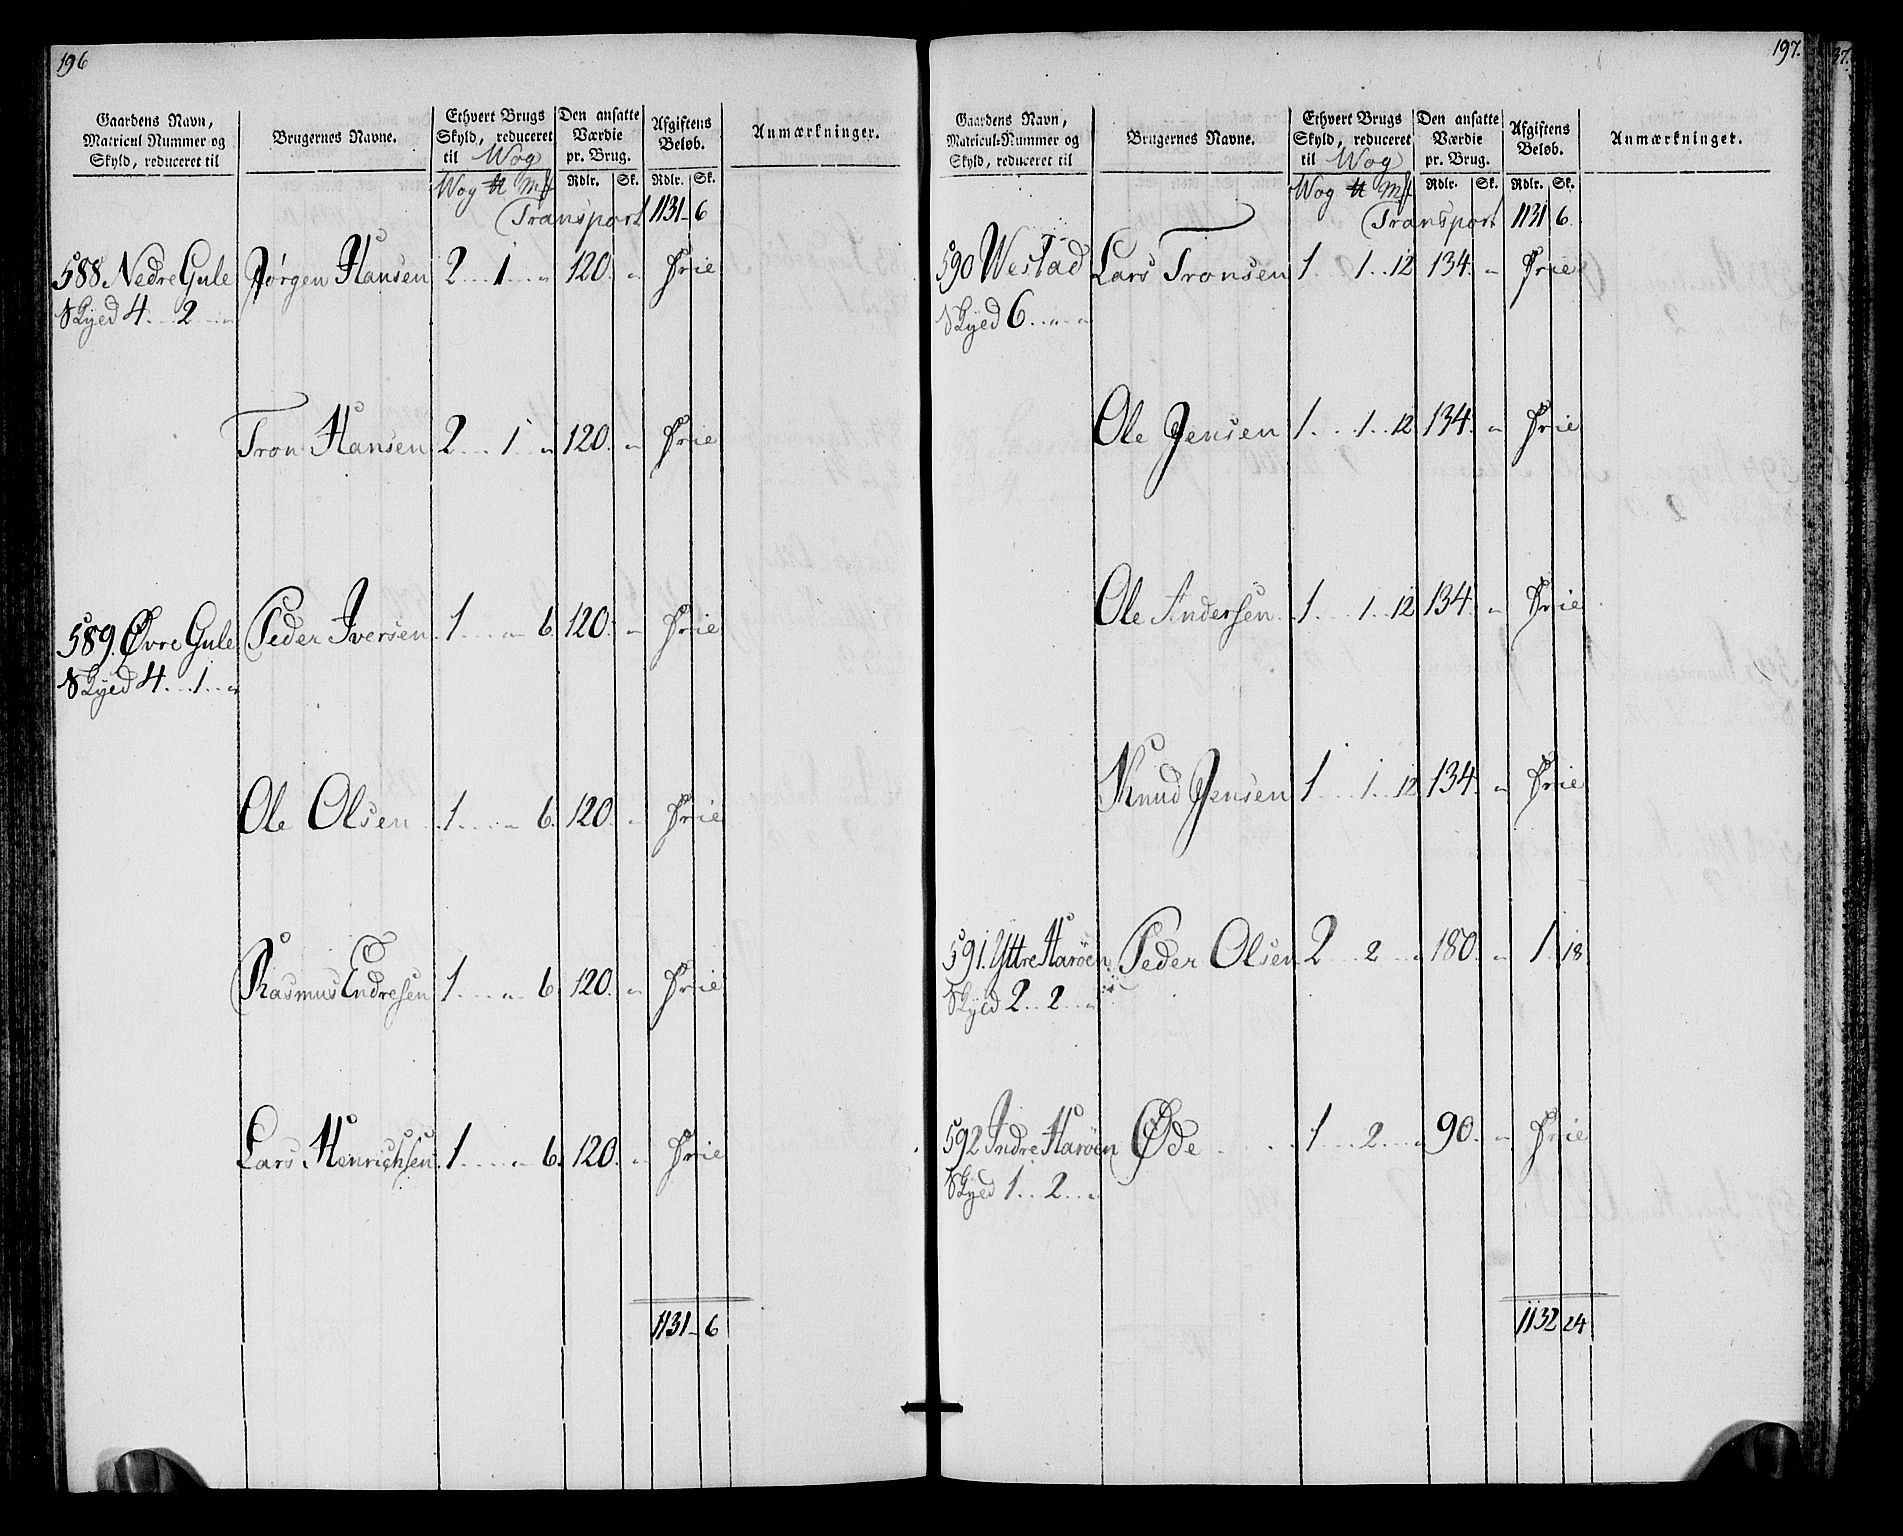 196
Gaardens Navn,
Matricul Nummer og
Skyld, reduceret til
Brugernes Navne.
Ethvert Brugs
Skyld, reduceret
til Wog
Wog ℔ Mk
Den ansatte
Værdie
pr. Brug.
Rdlr. Sk.
Afgiftens
Beløb.
Rdlr. Sk.
Anmærkninger.
Transport 1131 - 6
588. Nedre Gule Jørgen Hansen 2 .. 1 .. " 120. " Frie
Skyed 4 .. 2 .. "
Tron Hansen 2 .. 1 " 120. " Frie
589. Øvre Gule Peder Iversen 1 .. " 6. 120. " Frie
Skyed 4 .. 1 .. "
Ole Olsen 1 .. " 6. 120. " Frie
Rasmus Endresen 1 .. " 6. 120. " Frie
Lars Henrichsen 1 .. " 6. 120. " Frie
1131 - 6
197.
Gaardens Navn,
Matricul-Nummer og
Skyld, reduceret til
Brugernes Navne.
Ethvert Brugs
Skyld, reduceret
til Wog
Wog ℔ Mk
Den ansatte
Værdie
pr. Brug.
Rdlr. Sk.
Afgiftens
Beløb.
Rdlr. Sk.
Anmærkninger.
Transport 1131 6
590 Westad Lars Tronsen 1 .. 1 .. 12 134. " Frie
Skyed 6 .. " .. "
Ole Jensen 1 .. 1 .. 12 134. " Frie
Ole Andersen 1 .. 1 .. 12 134. " Frie
Knud Jensen 1 .. 1 .. 12 134. " Frie
591. Yttre Harøen Peder Olsen 2 .. 2 .. " 180. " 1. 18
Skyed 2 .. 2 .. "
592 Indre Harøen Øde 1 .. 2 .. " 90. " Frie
Skyed 1 .. 2 .. "
1132 24